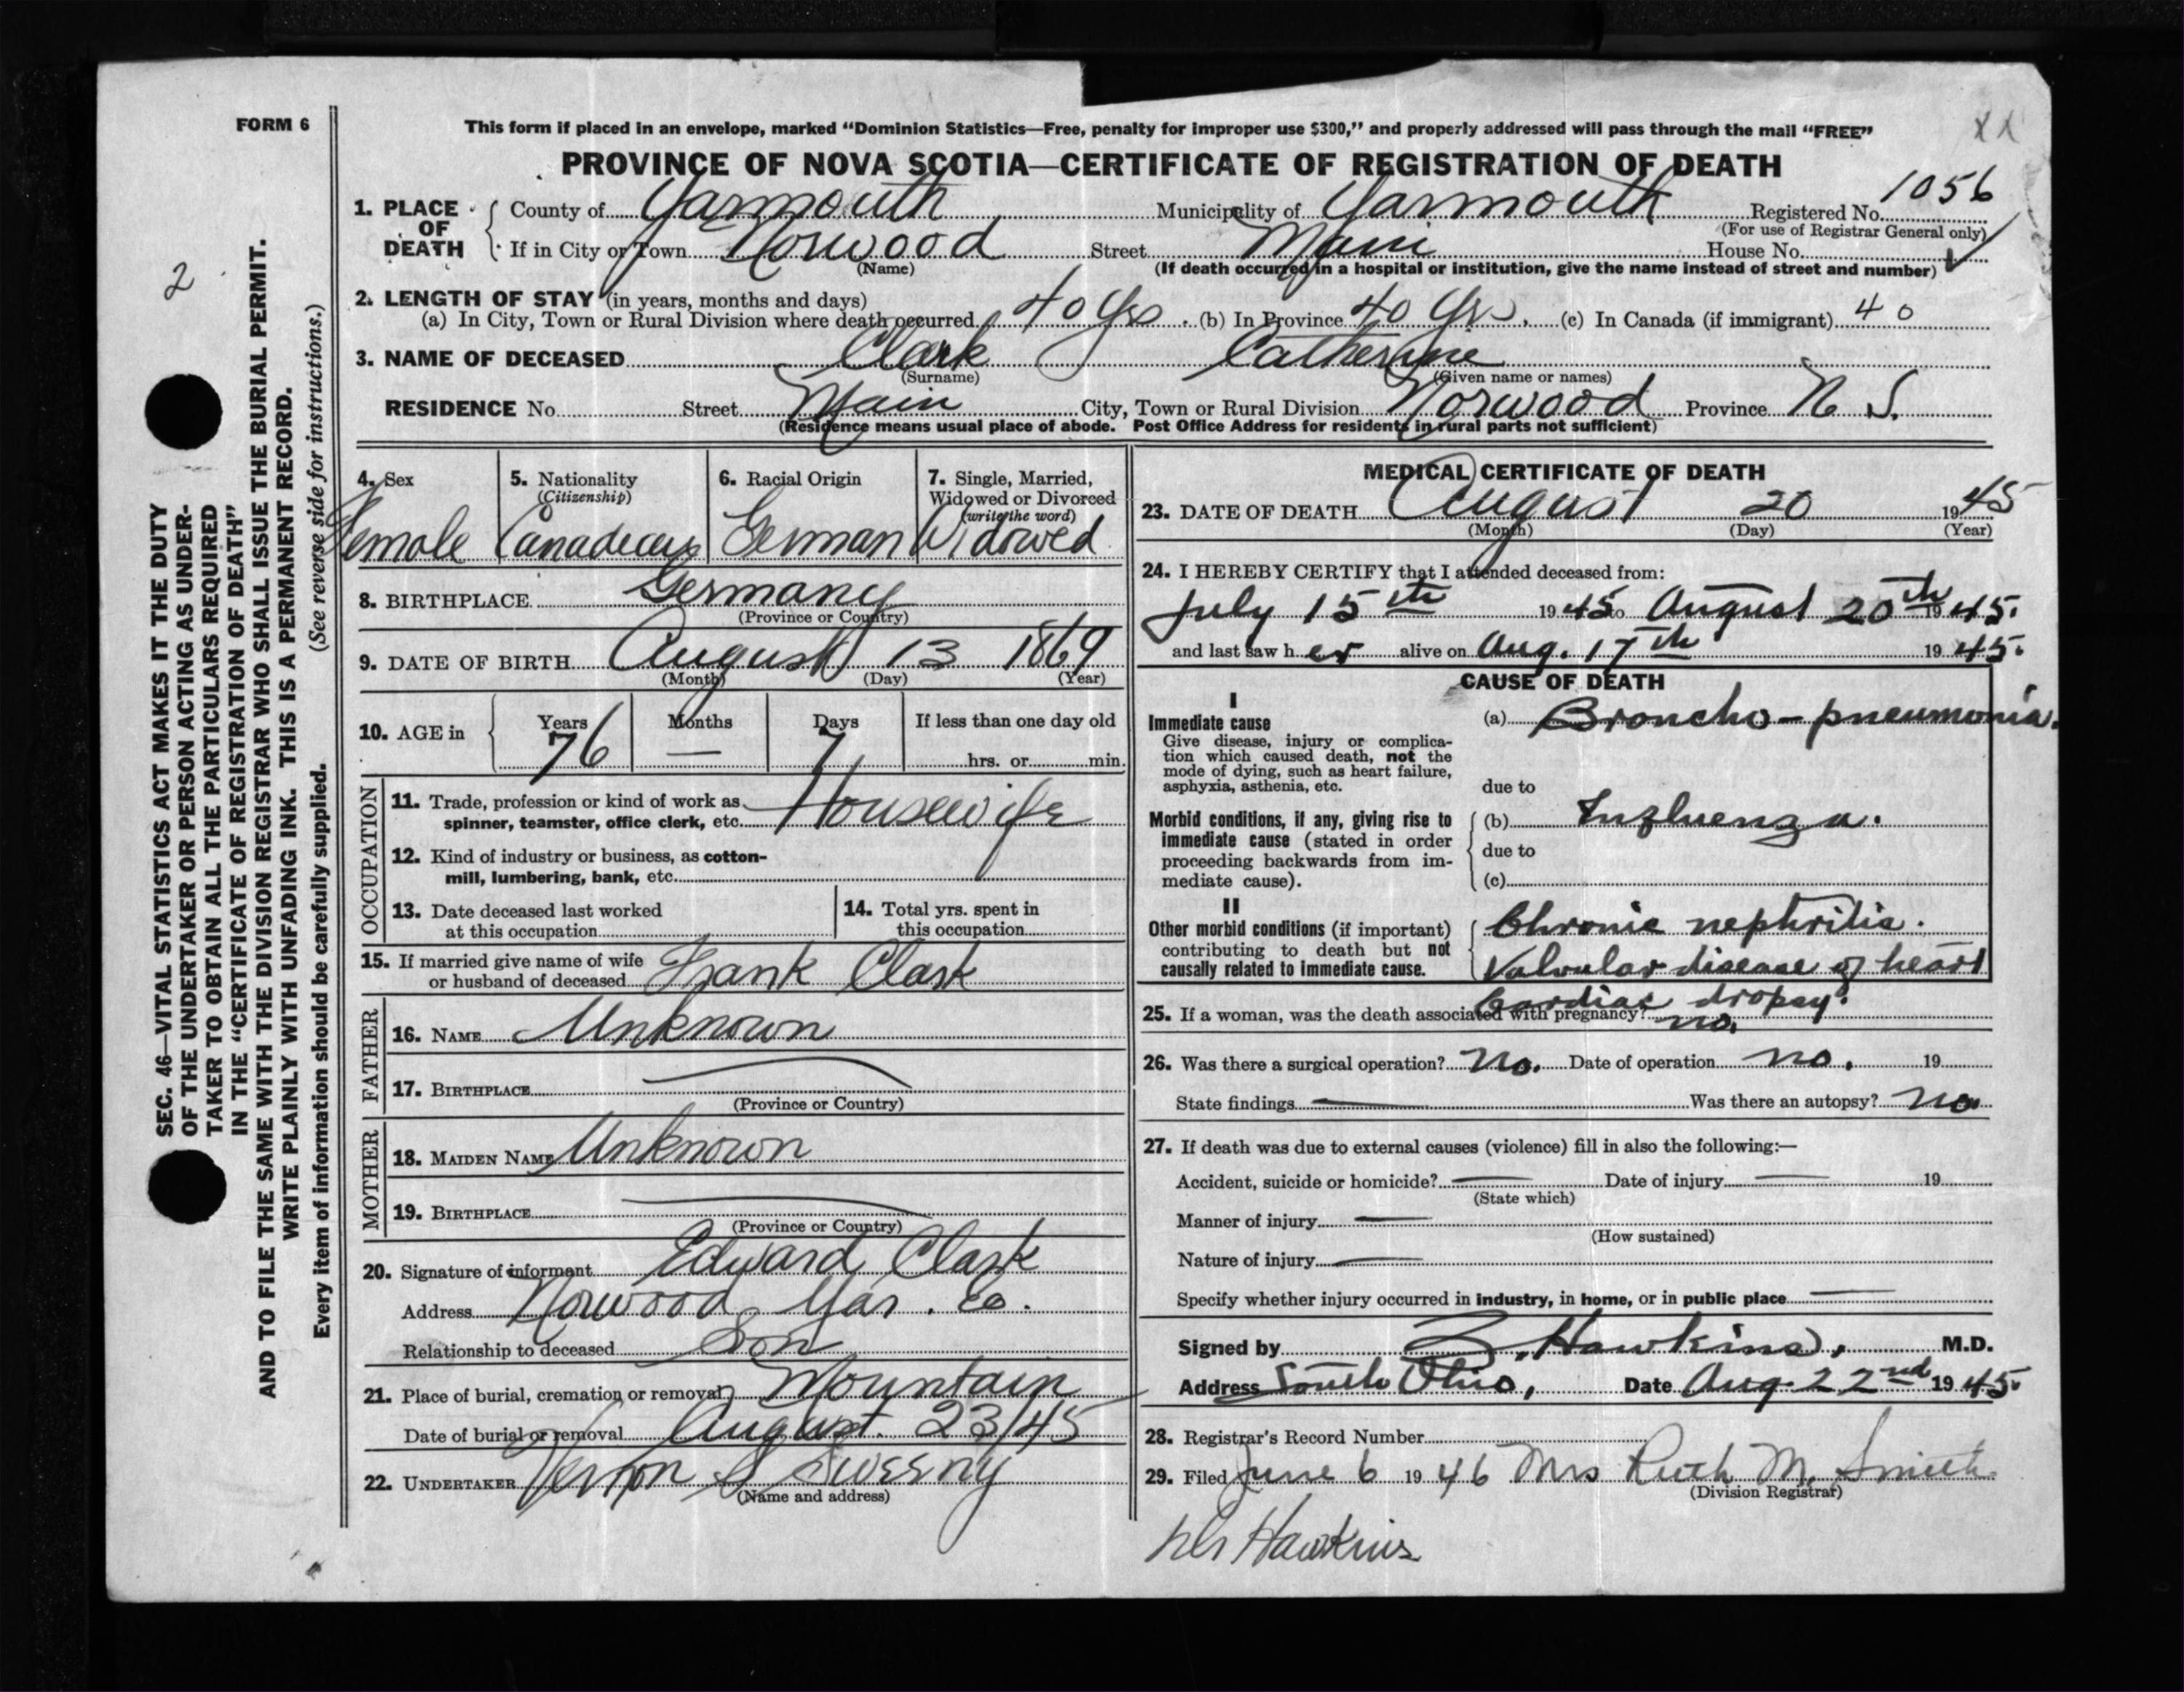 FORM 6
XX
This form if placed in an envelope, marked “Dominion Statistics—Free, penalty for improper use $300,” and properly addressed will pass through the mail “FREE”
PROVINCE OF NOVA SCOTIA—CERTIFICATE OF REGISTRATION OF DEATH
1. PLACE OF DEATH County of Yarmouth Municipality of Yarmouth Registered No. 1056
(For use of Registrar General only)
If in City or Town Norwood Street Main House No.
(Name) (If death occurred in a hospital or institution, give the name instead of street and number)
2. LENGTH OF STAY (in years, months and days)
(a) In City, Town or Rural Division where death occurred 40 Yrs. (b) In Province 40 Yrs. (c) In Canada (if immigrant) 40
3. NAME OF DECEASED Clark Catherine
(Surname) (Given name or names)
RESIDENCE No. Street Main City, Town or Rural Division Norwood Province N S.
(Residence means usual place of abode. Post Office Address for residents in rural parts not sufficient)
4. Sex
Female
5. Nationality
(Citizenship)
Canadian
6. Racial Origin
German
7. Single, Married,
Widowed or Divorced
(write the word)
Widowed
8. BIRTHPLACE Germany
(Province or Country)
9. DATE OF BIRTH August 13 1869
(Month) (Day) (Year)
10. AGE in Years Months Days If less than one day old
76 — 7 hrs. or min.
OCCUPATION
11. Trade, profession or kind of work as
spinner, teamster, office clerk, etc. Housewife
12. Kind of industry or business, as cotton-
mill, lumbering, bank, etc.
13. Date deceased last worked
at this occupation
14. Total yrs. spent in
this occupation
15. If married give name of wife
or husband of deceased Frank Clark
FATHER
16. NAME Unknown
17. BIRTHPLACE —
(Province or Country)
MOTHER
18. MAIDEN NAME Unknown
19. BIRTHPLACE —
(Province or Country)
20. Signature of informant Edward Clark
Address Norwood, Yar. Co.
Relationship to deceased Son
21. Place of burial, cremation or removal Mountain
Date of burial or removal August. 23/45
22. UNDERTAKER Vernon S Sweeny
(Name and address)
MEDICAL CERTIFICATE OF DEATH
23. DATE OF DEATH August 20 1945
(Month) (Day) (Year)
24. I HEREBY CERTIFY that I attended deceased from:
July 15th 1945 to August 20th 1945.
and last saw her alive on Aug. 17th 1945.
CAUSE OF DEATH
I
Immediate cause (a) Broncho-pneumonia.
Give disease, injury or complica-
tion which caused death, not the
mode of dying, such as heart failure,
asphyxia, asthenia, etc. due to
Morbid conditions, if any, giving rise to (b) Influenza.
immediate cause (stated in order due to
proceeding backwards from im-
mediate cause). (c)
II
Other morbid conditions (if important) Chronic nephritis.
contributing to death but not
causally related to immediate cause. Valvular disease of heart
Cardiac dropsy.
25. If a woman, was the death associated with pregnancy? no.
26. Was there a surgical operation? No. Date of operation no. 19
State findings — Was there an autopsy? no
27. If death was due to external causes (violence) fill in also the following:—
Accident, suicide or homicide? — Date of injury — 19
(State which)
Manner of injury —
(How sustained)
Nature of injury —
Specify whether injury occurred in industry, in home, or in public place —
Signed by Z. Hawkins, M.D.
Address South Ohio, Date Aug. 22nd 1945.
28. Registrar's Record Number
29. Filed June 6 1946 Mrs Ruth M. Smith
(Division Registrar)
Dr Hawkins
2
SEC. 46—VITAL STATISTICS ACT MAKES IT THE DUTY
OF THE UNDERTAKER OR PERSON ACTING AS UNDER-
TAKER TO OBTAIN ALL THE PARTICULARS REQUIRED
IN THE “CERTIFICATE OF REGISTRATION OF DEATH”
AND TO FILE THE SAME WITH THE DIVISION REGISTRAR WHO SHALL ISSUE THE BURIAL PERMIT.
WRITE PLAINLY WITH UNFADING INK. THIS IS A PERMANENT RECORD.
Every item of information should be carefully supplied. (See reverse side for instructions.)